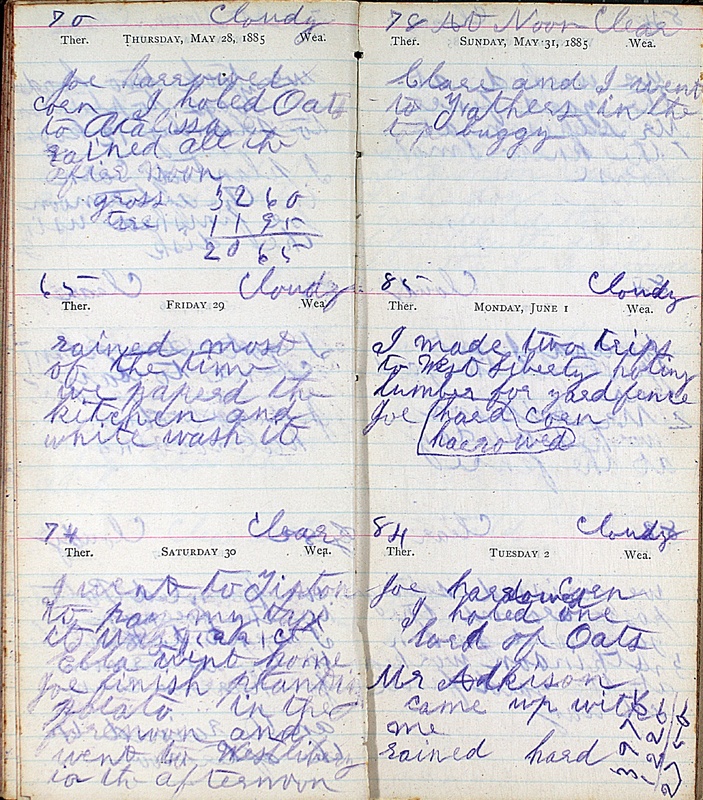 70 Cloudy
Ther. THURSDAY, MAY 28, 1885 Wea.
Joe harrowed
corn I holed Oats
to Atalissa
rained all the
after noon
gross 3260
tre 1195
2065
65 Cloudy
Ther. FRIDAY 29 Wea.
rained most
of the time
we paperd the
kitchen and
white wash it
74 Clear
Ther. SATURDAY 30 Wea.
I went to Tipton
to pay my taxs
it was
went home
Joe finish planting
potato in the
fornoon and
went to West liberty
in th afternoon
78 At Noon Clear
Ther. SUNDAY, MAY 31, 1885 Wea.
Clare and I went
to Fathers in the
top buggy
85 Cloudy
Ther. MONDAY, JUNE 1 Wea.
I made two trips
to West Liberty holing
lumber for yardfence
Joe hard corn
harrowed
84 Cloudy
Ther. TUESDAY 2 Wea.
Joe harrowed Corn
I holed one
load of Oats
Mr Adkison
came up with
me
rained hard